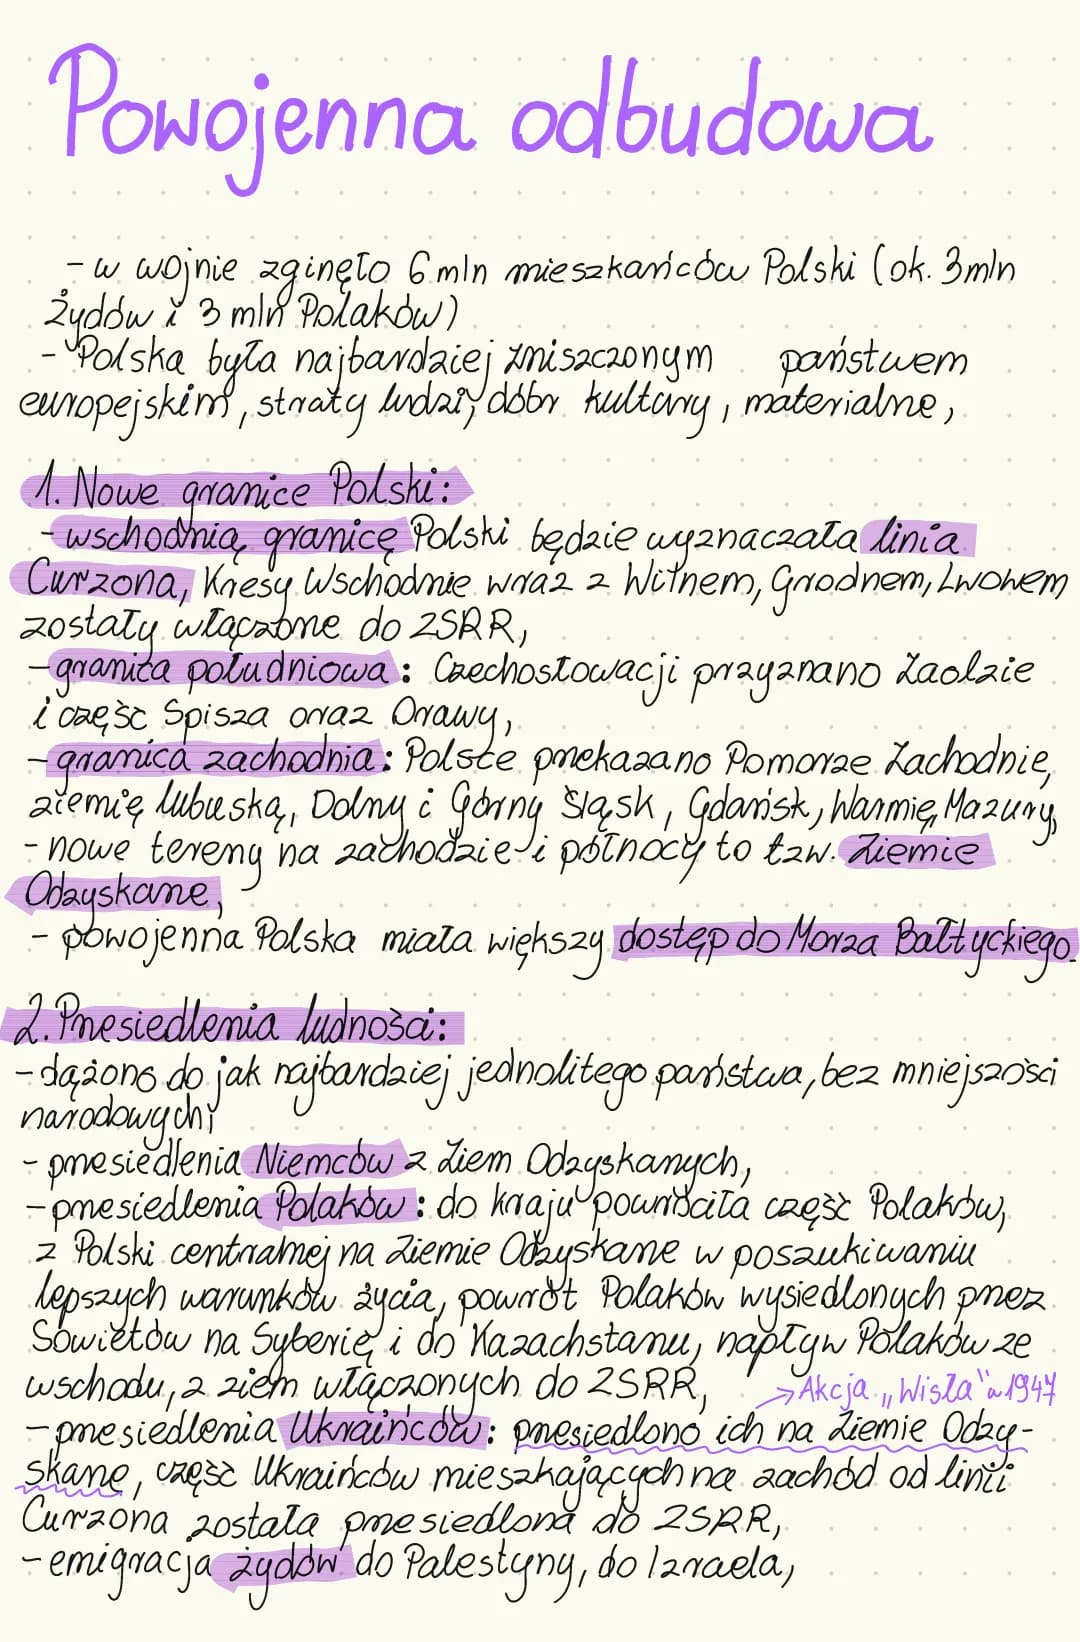 Powojenna odbudowa
- w wojnie zginęło 6 mln mieszkańców Polski (ok. 3 mln
żydów i 3 mln Polaków)
- Polska była najbardziej zniszczonym państwem
europejskim, straty ludzi, dóbr kultury, materialne,
1. Nowe granice Polski:
- wschodnią granicę Polski będzie wyznaczała linia
Curzona, Kresy Wschodnie wraz z Wilnem, Grodnem, Lwowem
zostały włączone do ZSRR,
- granica południowa: Czechosłowacji przyznano Zaolzie
i część Spisza oraz Orawy,
- granica zachodnia: Polsce przekazano Pomorze Zachodnie,
ziemię lubuską, Dolny i Górny Śląsk, Gdańsk, Warmię, Mazury,
- nowe tereny na zachodzie i północy to tzw. Ziemie
Odzyskane,
- powojenna Polska miała większy dostęp do Morza Bałtyckiego.
2. Przesiedlenia ludności:
- dążono do jak najbardziej jednolitego państwa, bez mniejszości
narodowych,
- przesiedlenia Niemców z Ziem Odzyskanych,
- przesiedlenia Polaków: do kraju powróciła część Polaków,
z Polski centralnej na Ziemie Odzyskane w poszukiwaniu
lepszych warunków życia, powrót Polaków wysiedlonych przez
Sowietów na Syberię i do Kazachstanu, napływ Polaków ze
wschodu, z ziem włączonych do ZSRR,
→ Akcja „Wisła" w 1947
- przesiedlenia Ukraińców: przesiedlono ich na Ziemie Odzy-
skane, część Ukraińców mieszkających na zachód od linii
Curzona została przesiedlona do ZSRR,
- emigracja żydów do Palestyny, do Izraela,